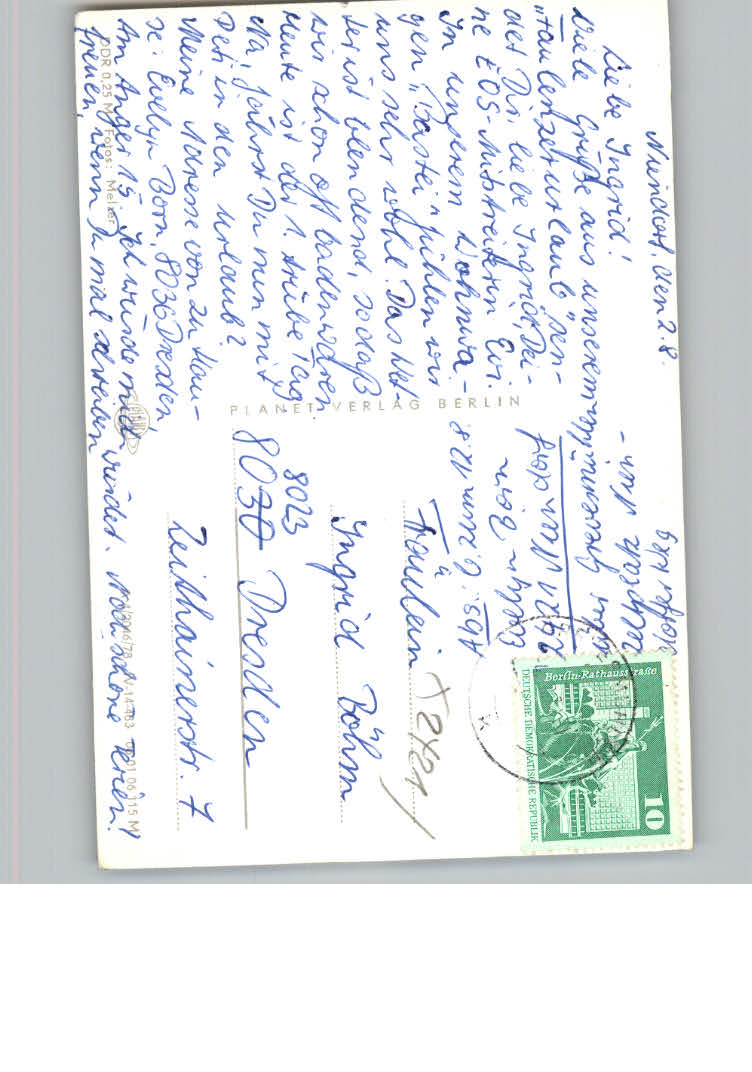 Niendorf, den 2.8.
Liebe Ingrid!
Viele Grüße aus unserem
"Faulenzerurlaub" sen-
det Dir, liebe Ingrid, Dei-
ne EOS-Mitstreiterin Evi.
In unserem Wohnwa-
gen "Bastei" fühlen wir
uns sehr wohl. Das Wet-
ter ist blendend, sodaß
wir schon oft baden waren
Heute ist der 1. trübe Tag
Na, fährst Du nun mit
Deti in den Urlaub?
Meine Adresse von zu Hau-
se: Evelyn Born, 8036 Dresden
Am Anger 15. Ich würde mich
freuen, wenn Du mal schreiben
würdest. Noch schöne Ferien!
Abs. E. Born
Evelyn Born
2421 Niendorf
Fräulein
Ingrid Böhm
8023
8030 Dresden
Zeithainerstr. 7
PLANET-VERLAG BERLIN
DDR 0,25 M Fotos: Melzer
Berlin-Rathausstraße
DEUTSCHE DEMOKRATISCHE REPUBLIK
10